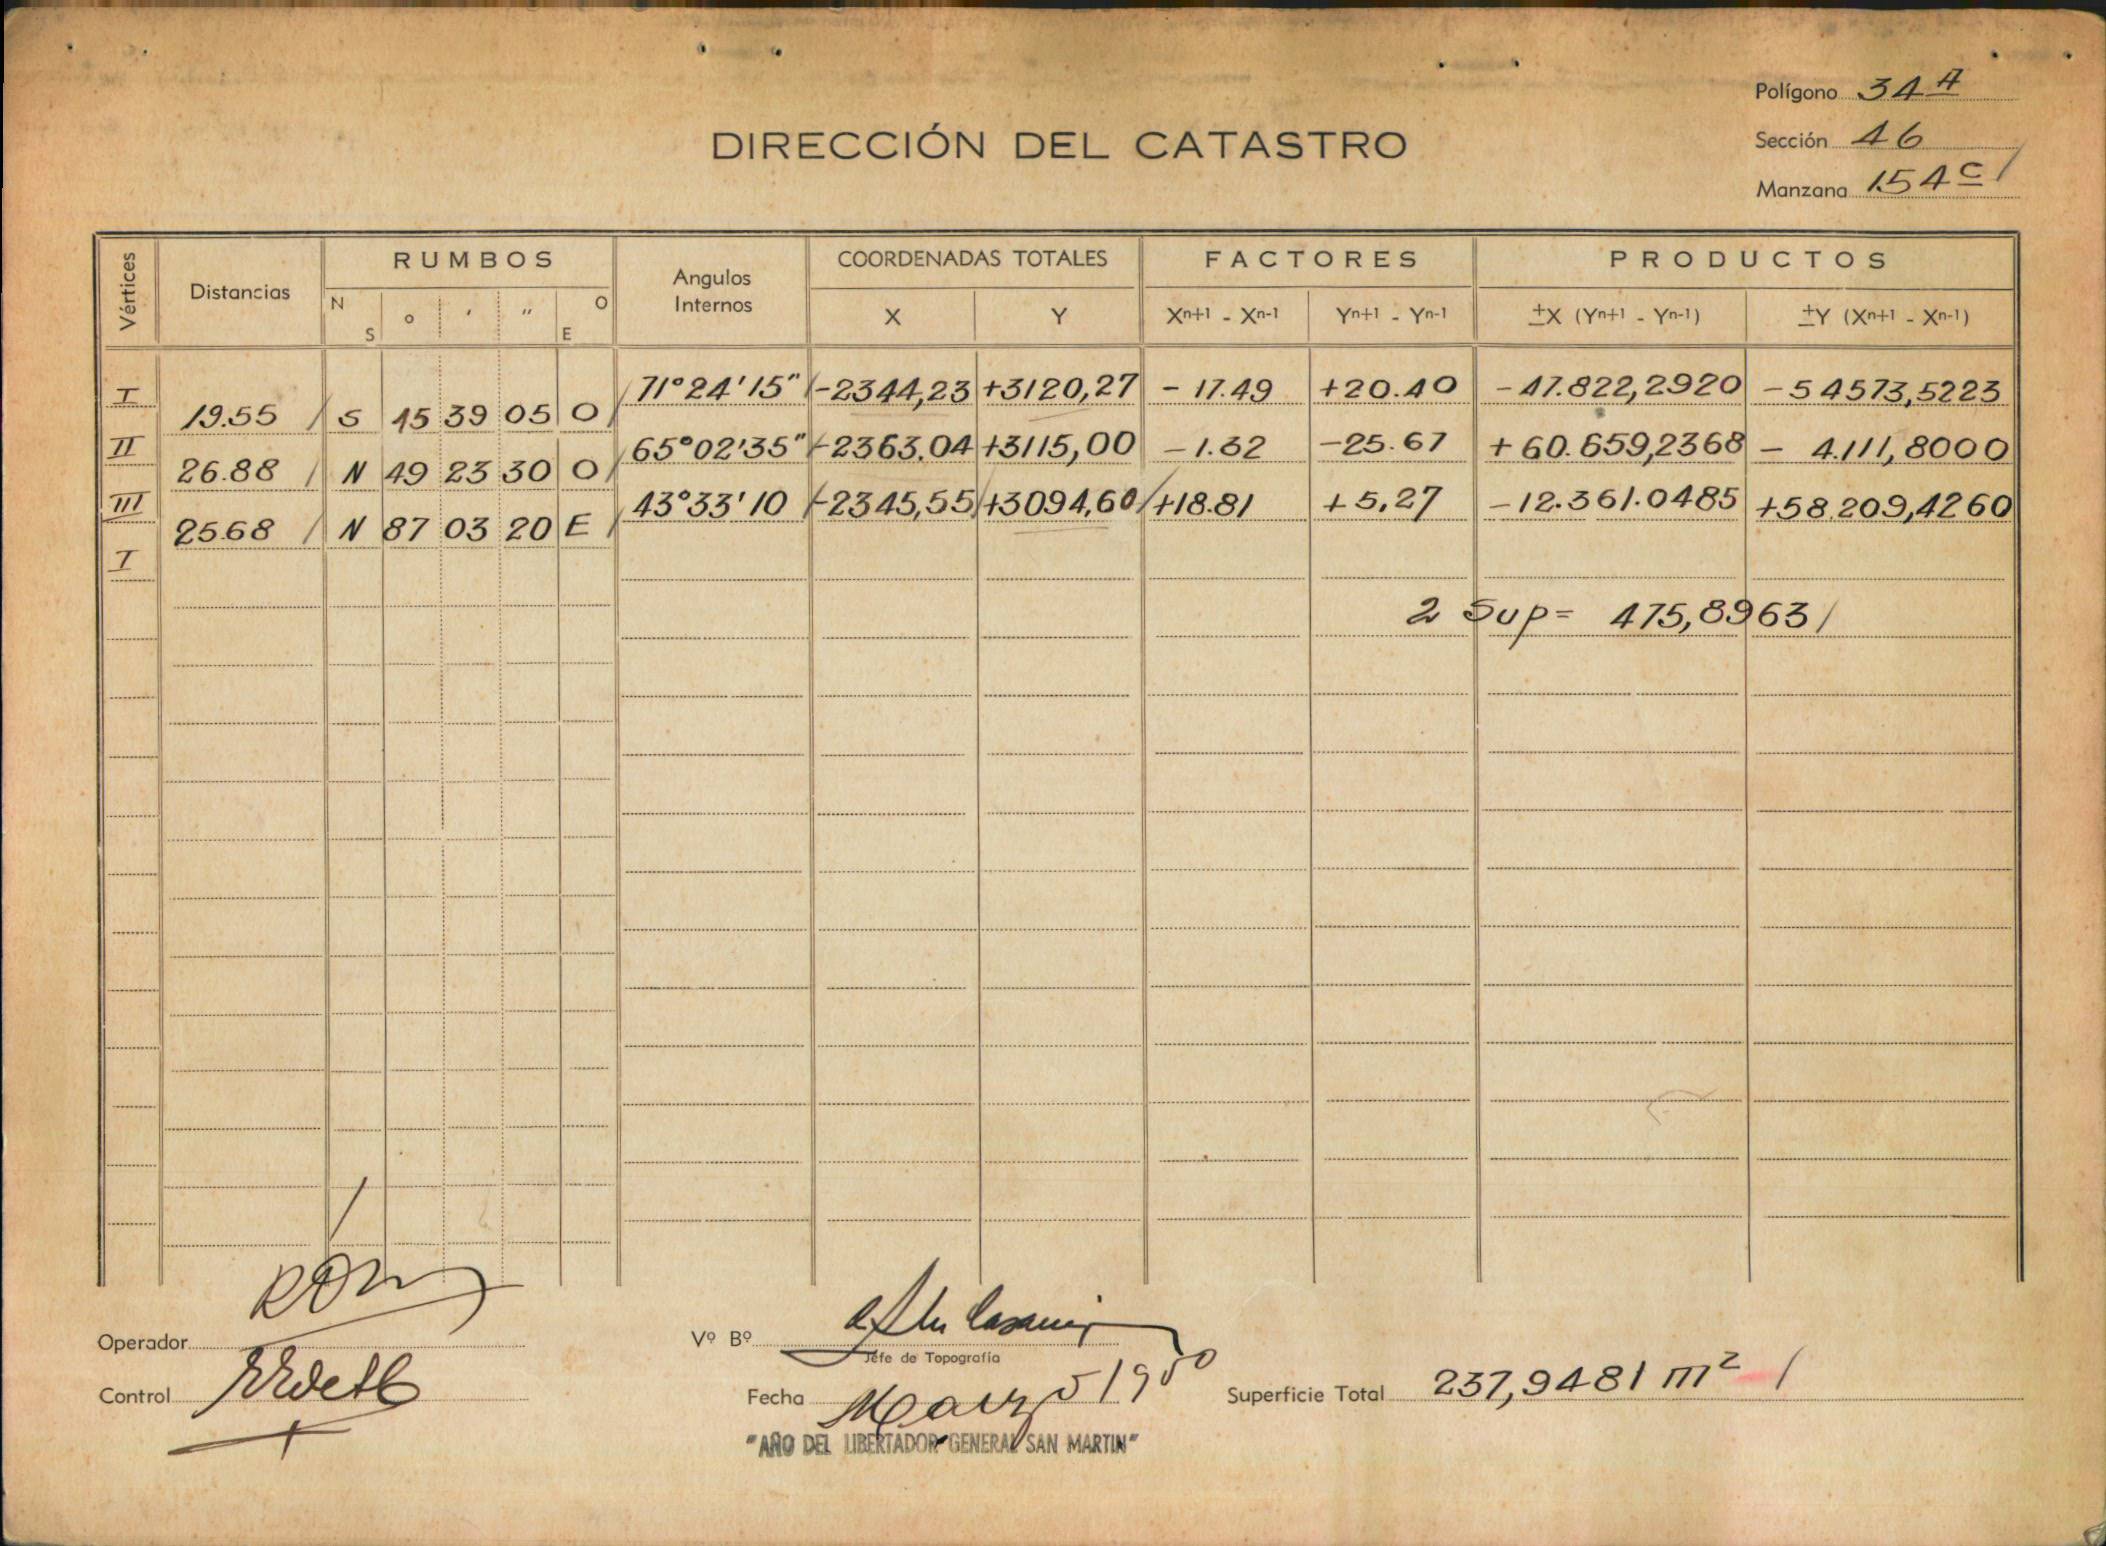 Polígono 34 A
DIRECCIÓN DEL CATASTRO
Sección 46
Manzana 154 c /
Vértices
Distancias
RUMBOS
N S o ' " O E
Angulos Internos
COORDENADAS TOTALES
X Y
FACTORES
Xn+1 - Xn-1 Yn+1 - Yn-1
PRODUCTOS
±X (Yn+1 - Yn-1) ±Y (Xn+1 - Xn-1)
I 71°24'15" -2344,23 +3120,27 -17.49 +20.40 -47.822,2920 -54573,5223
19.55 / S 15 39 05 O /
II 65°02'35" -2363.04 +3115,00 -1.32 -25.67 +60.659,2368 - 4.111,8000
26.88 / N 49 23 30 O /
III 43°33'10 -2345,55 +3094,60 / +18.81 +5,27 -12.361.0485 +58.209,4260
25.68 / N 87 03 20 E /
I
2 Sup= 475,8963 /
Operador
Vº Bº
Jefe de Topografía
Control
Fecha Marzo 1950
Superficie Total 237,9481 m2 /
"AÑO DEL LIBERTADOR GENERAL SAN MARTIN"